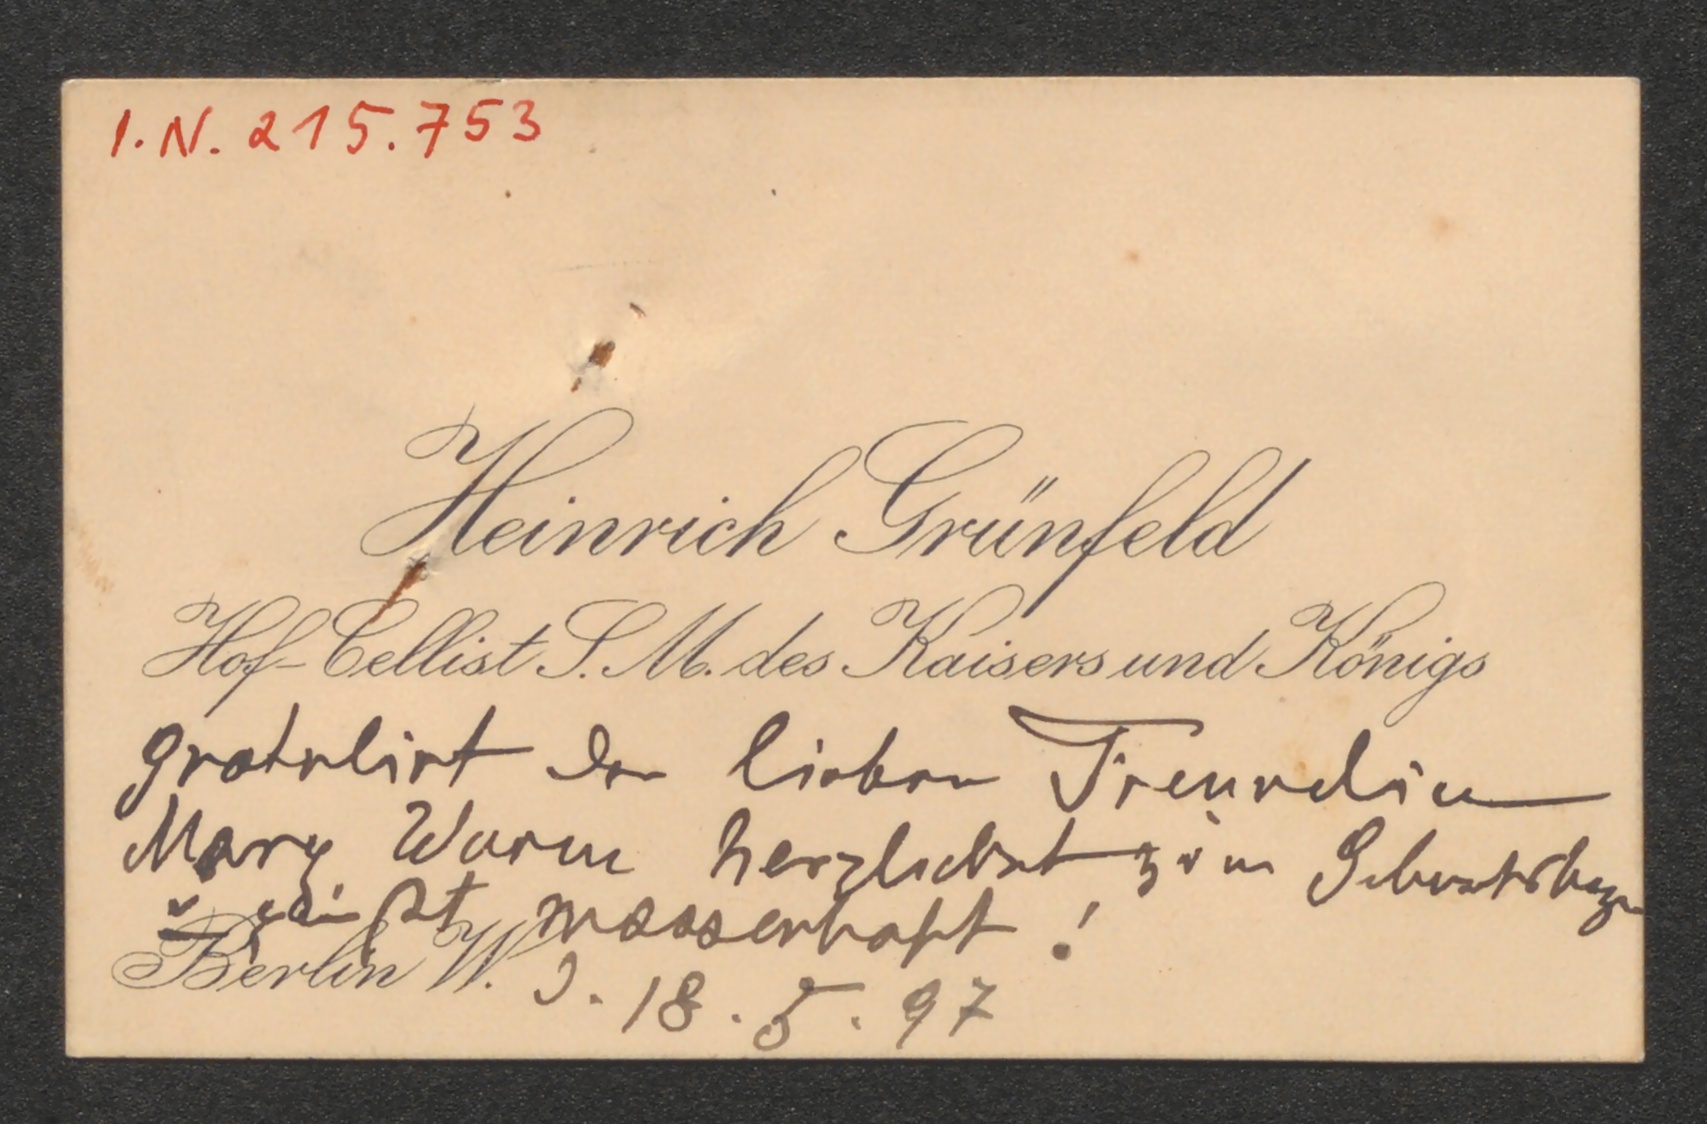 I.N. 215.753
Heinrich Grünfeld
Hof-Cellist S. M. des Kaisers und Königs
gratulirt der lieben Freundin
Mary Wurm herzlichst zum Geburtstage
massenhaft!
Berlin W. d. 18.5.97